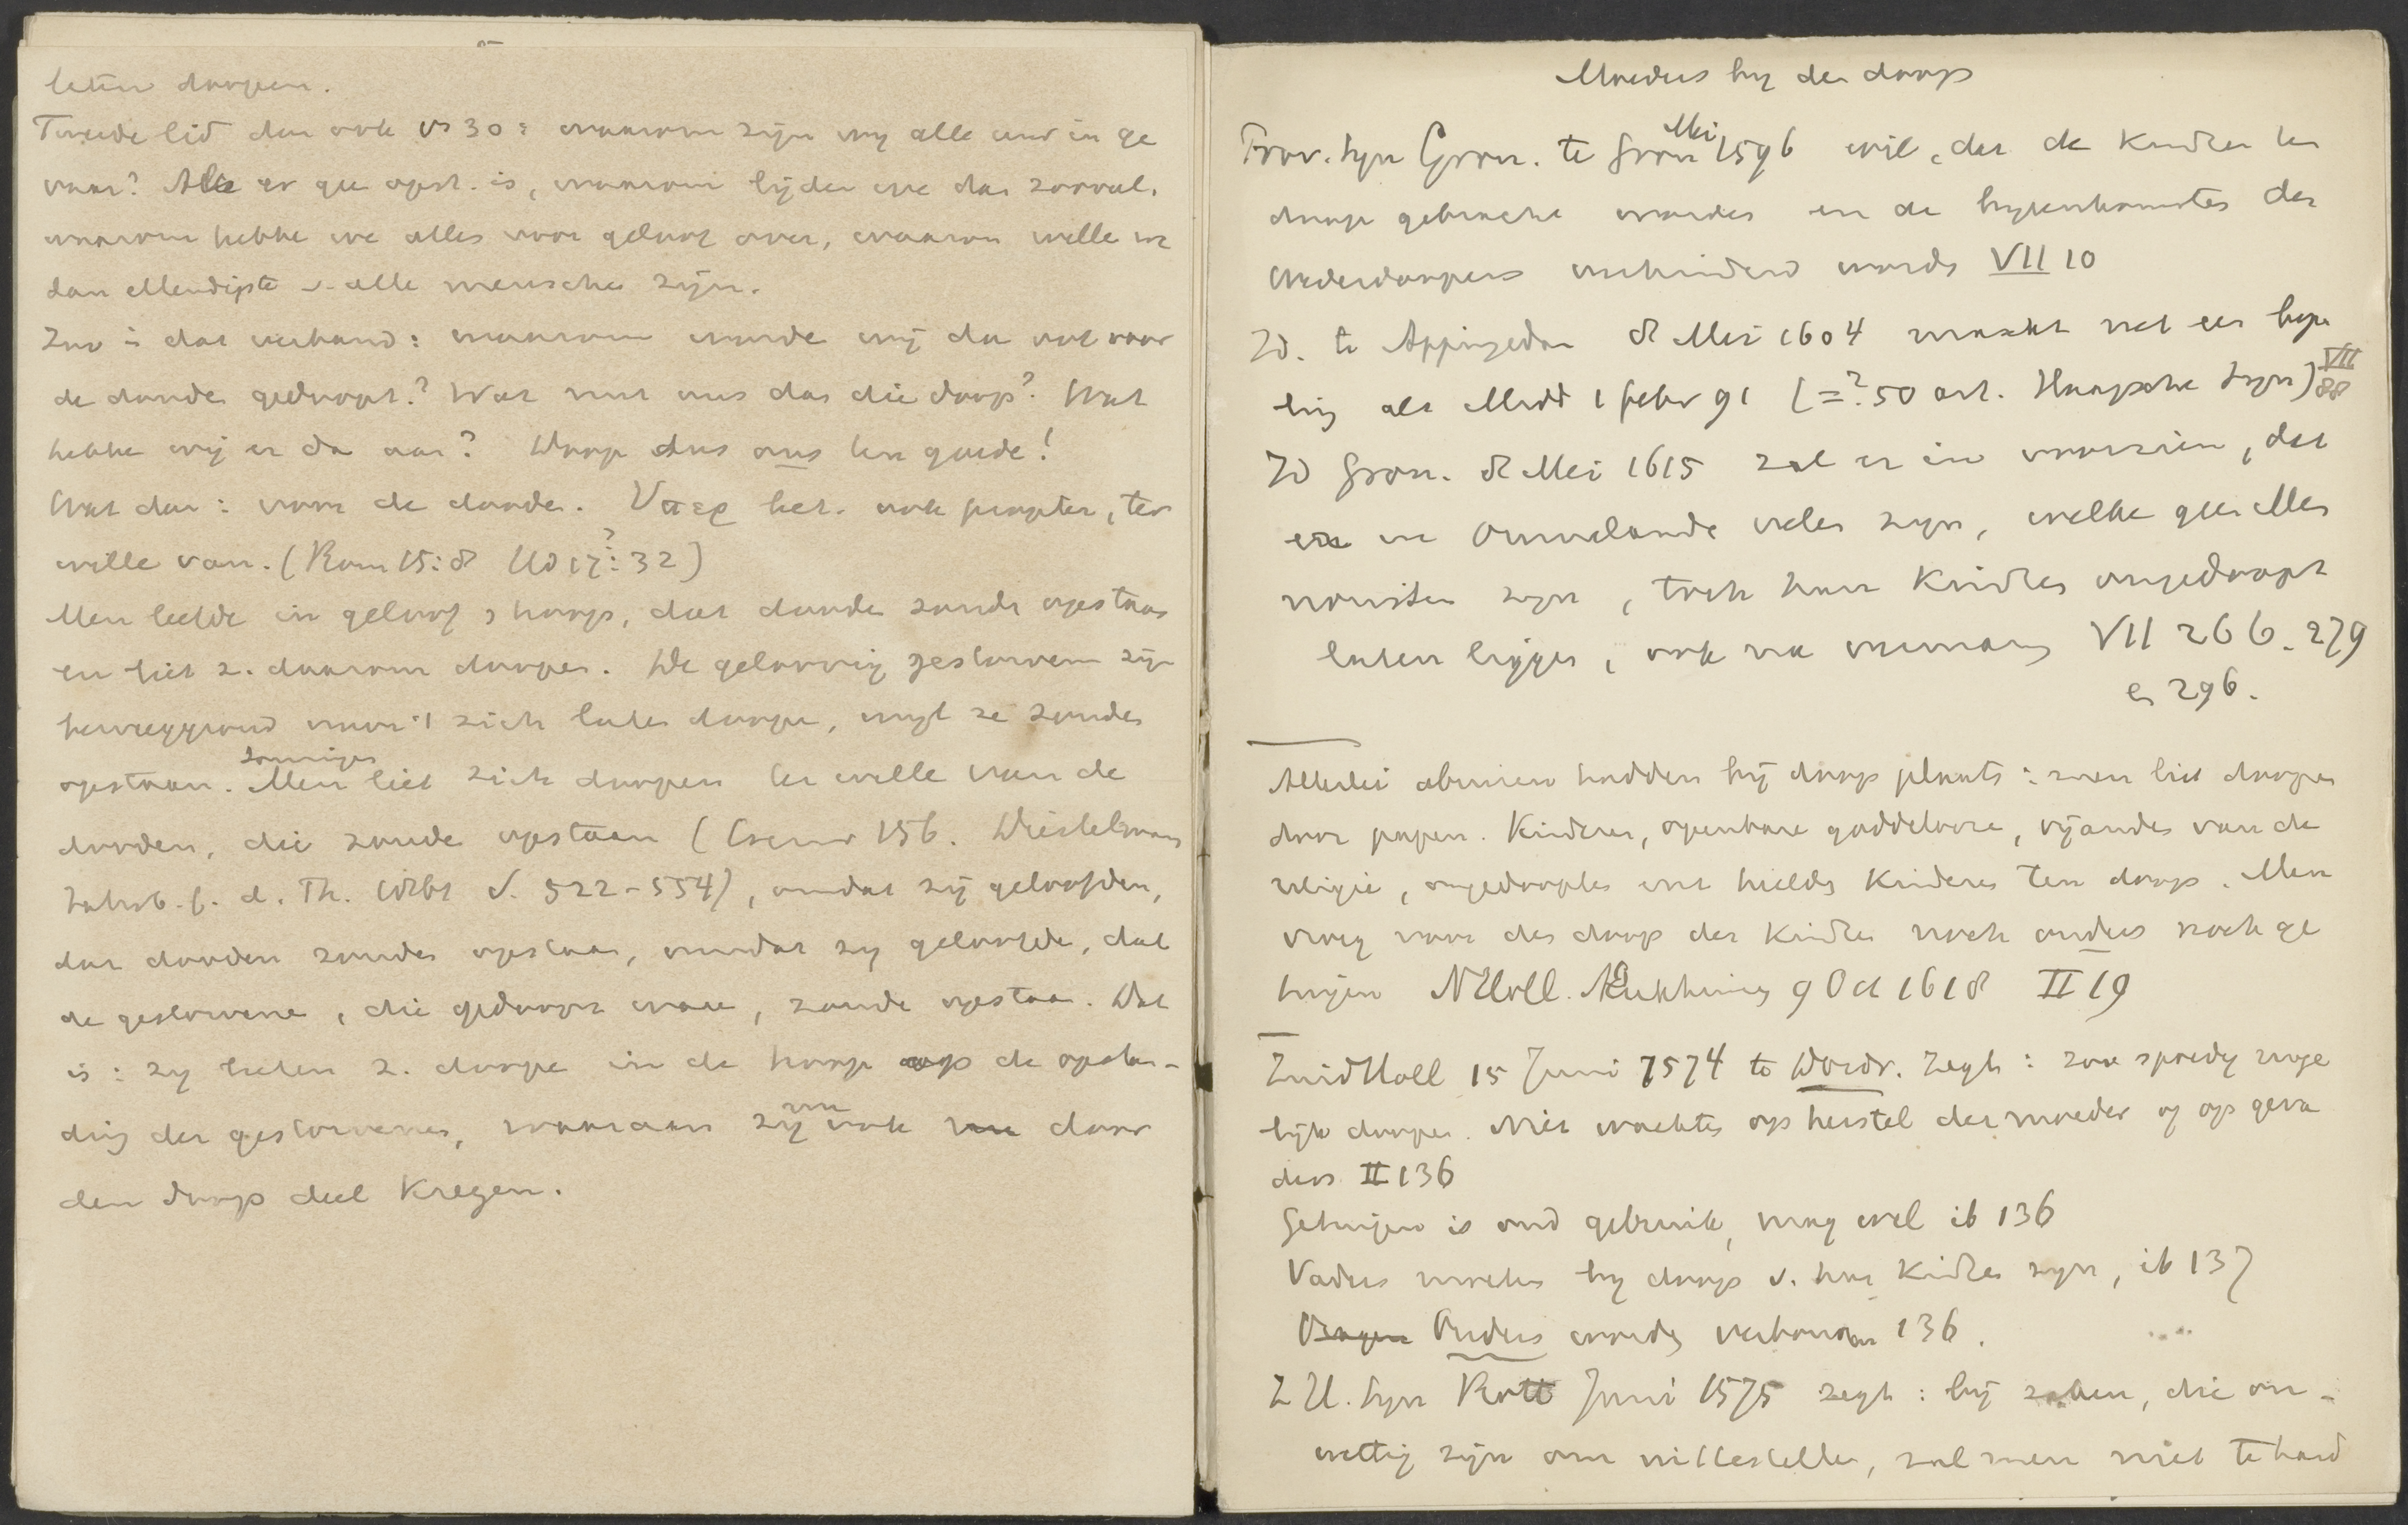 laten doopen.
Tweede lid dan ook vs 30: waarom zijn wij alle uur in ge
vaar? Als er gee opst. is, waarom lijden we dan zooveel.
waarom hebbe we alles voor geloof over, waarom wille we
dan ellendigste v. alle mensche zijn.
Zoo is dat verband: waarom worde wij dan ook voor
de doode gedoopt? Wat nut ons dan die doop? Wat
hebbe wij er da aan? Doop dus ons ten goede!
Wat dan: voor de doode. Ὑπερ bet. ook propter, ter
wille van. (Rom 15:8 Ud 17?: 32)
Men leefde in geloof & hoop, dat doode zoude opstaan
en liet z. daarom doopen. De geloovig gestorvem zijn
beweeggrond voor 't zich laten doope, wijl ze zouden
opstaan. Sommigen Men liet zich doopen ter wille van de
dooden, die zoude opstaan (Cremer 156. Diestelmann
Jahrb. f. d. Th. 1861 S. 522-554), omdat zij geloofden,
dat dooden zouden opstaan, omdat zij geloofde, dat
de gestorvene, die gedoopt ware, zoude opstaan. Dat
is: zij lieten z. doope in de hoop op de opstan-
ding der gestorvenen, waaraan zij nu ook nu door
den doop deel kregen.
Moeders bij den doop
Prov. syn Gron. te Gron Mei 1596 wil, dat de kindren ten
doop gebracht worden en de bijeenkomsten der
Wederdoopers verhinderd wordn VII 10
Id. te Appingedam 8 Mei 1604 maakt net een bepa
ling als Midd 1 febr 91 (=? 50 art. Haagsche Syn) VII 88
Id Gron. 8 Mei 1615 zal er in voorzien, dat
er in Ommelande velen zijn, welke geen Men
noniten zijn, toch hun kindren ongedoopt
laten liggen, ook na vermaning VII 266. 279
en 296.
Allerlei abuisen hadden bij doop plaats: men liet doopen
door papen. Kinderen, openbare goddeloore, vijanden van de
religie, ongedoopten enz hielde kinderen ten doop. Men
vroeg voor den doop der kindren noch ouders noch ge
tuigen NHoll. Enkhuizen 9 Oct 1618 II 19
ZuidHoll 15 Juni 1574 te Dordr. Zegt: zoo spoedig moge
lijk doopen. Niet wachten op herstel der moeder of op geva
ders II 136
Getuigen is oud gebruik, mag wel ib 136
Vaders moeten bij doop v. hun kindren zijn, ib 137
Vragen Ouders worden verbonden 136.
Z H. Syn Rott Juni 1575 zegt: bij zaken, die on-
wettig zijn om uittestellen, zal men niet te hard